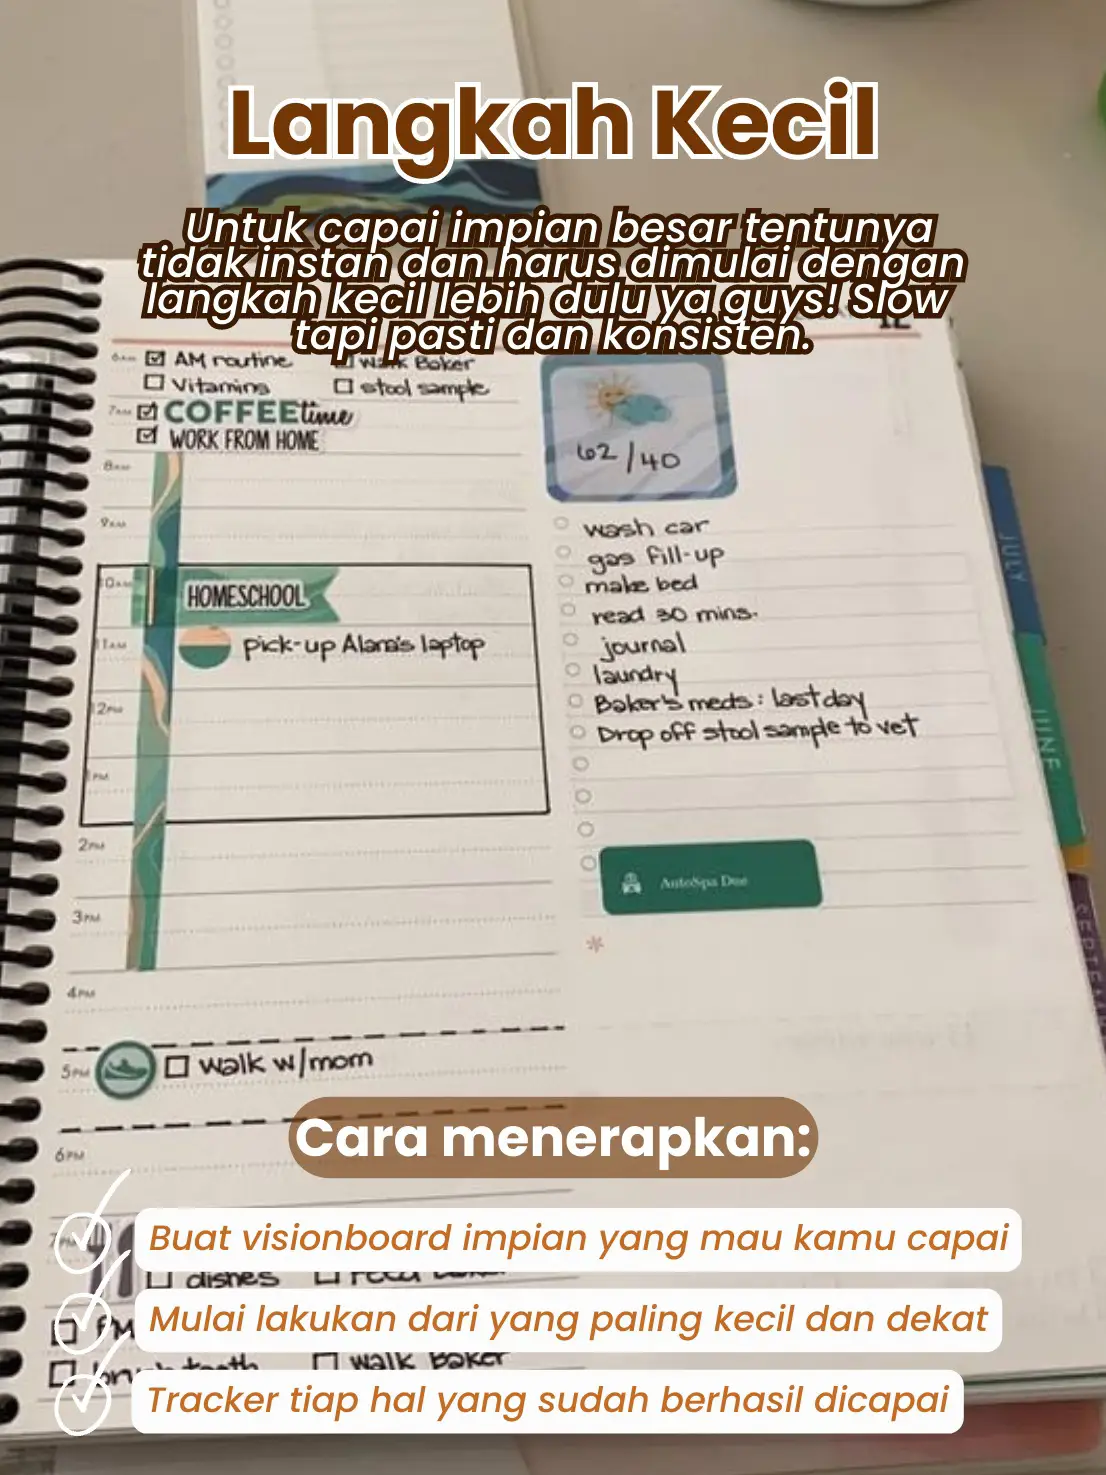 Langkah Kecil
Untuk capai impian besar tentunya
tidak instan dan harus dimulai dengan
langkah kecil lebih dulu ya guys! Slow
tapi pasti dan konsisten.
12
6AM AM routine
walk Baker
Vitamins
stool sample
7AM COFFEE time
WORK FROM HOME
8AM
9AM
10AM HOMESCHOOL
11AM pick-up Alana's laptop
12PM
1PM
2PM
3PM
4PM
5PM walk w/mom
6PM
62/40
wash car
gas fill-up
make bed
read 30 mins.
journal
laundry
Baker's meds: last day
Drop off stool sample to vet
AutoSpa Due
*
JULY
JUNE
Cara menerapkan:
Buat visionboard impian yang mau kamu capai
7PM
dishes
Mulai lakukan dari yang paling kecil dan dekat
PM
walk Baker
Tracker tiap hal yang sudah berhasil dicapai